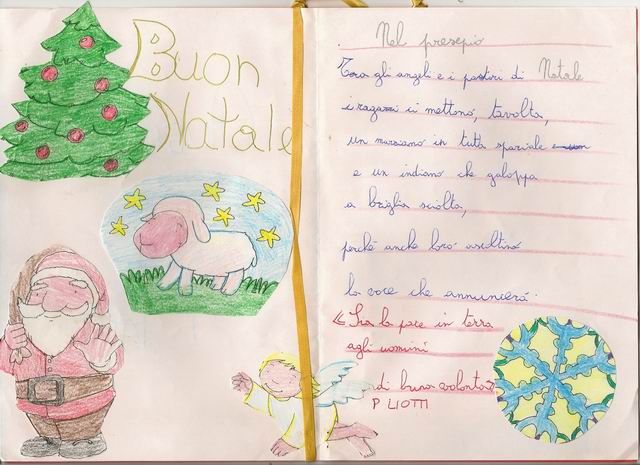 Buon
Natale
Nel presepio
Tora gli angeli e i pastori di Natale
i ragazzi ci mettono, tavolta,
un marziano in tuta spaziale e un
e un indiano che galoppa
a briglia sciolta,
perché anche loro ascoltino
la voce che annuncerà.
"Sia la pace in terra
agli uomini
di buna volontà"
P LIOTTI